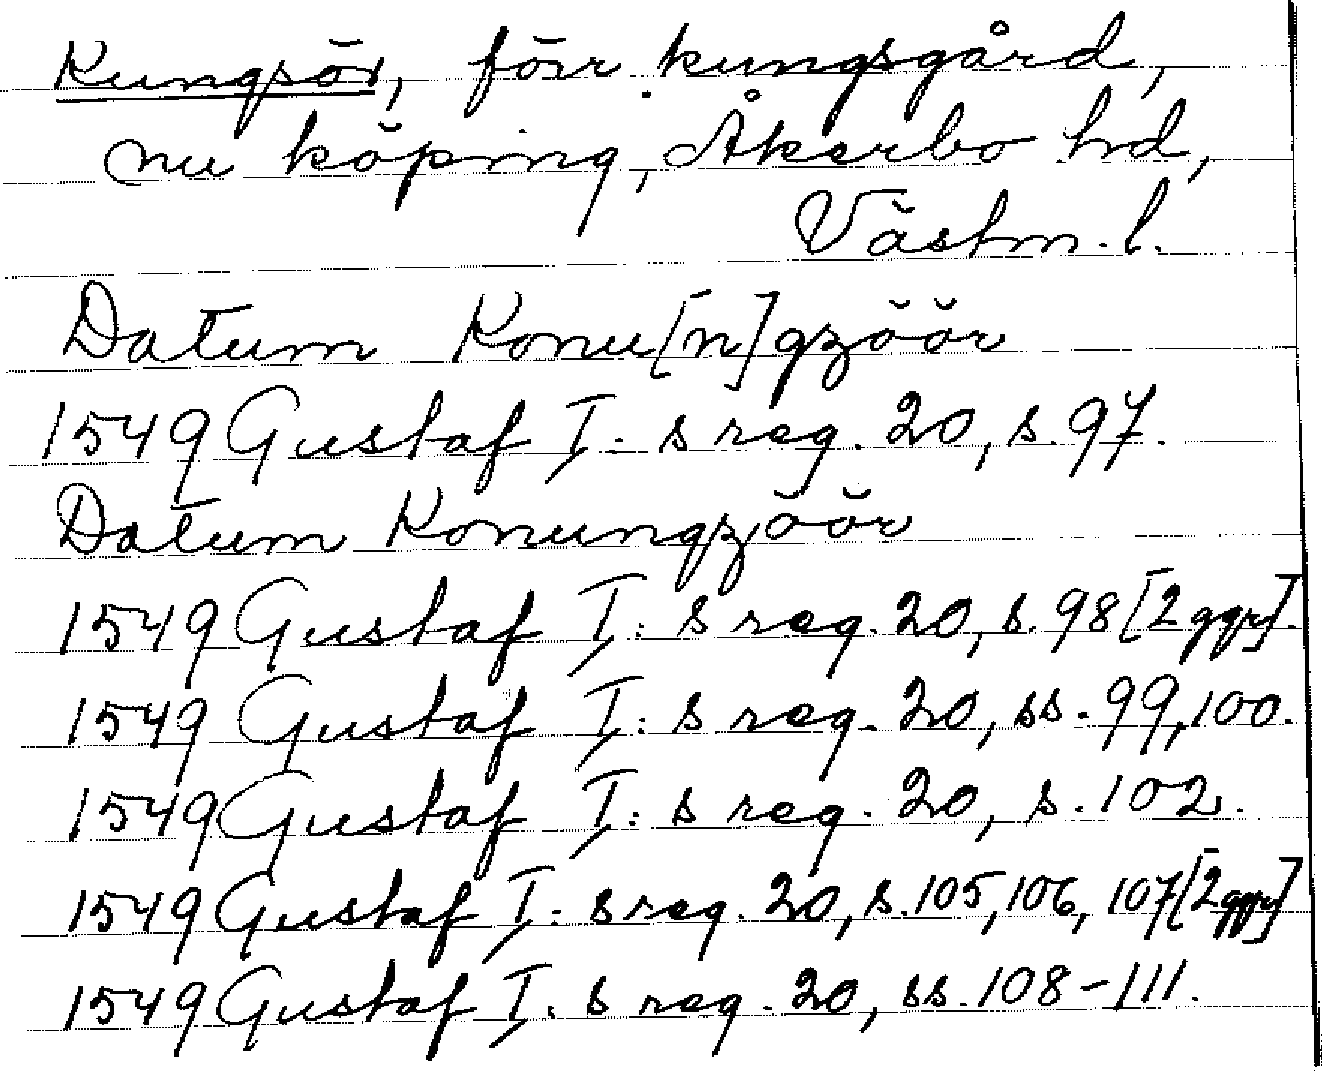 Kungsör, förr kungsgård,
nu köping, Åkerbo hd,
Västm. l.
Datum Konu[n]gzöör
1549 Gustaf I:s reg. 20, s. 97.
Datum Konungzöör
1549 Gustaf I:s reg. 20, s. 98 [2 ggr].
1549 Gustaf I:s reg. 20, ss. 99, 100.
1549 Gustaf I:s reg. 20, s. 102.
1549 Gustaf I:s reg. 20, s. 105, 106, 107 [2 ggr]
1549 Gustaf I:s reg. 20, ss. 108-111.